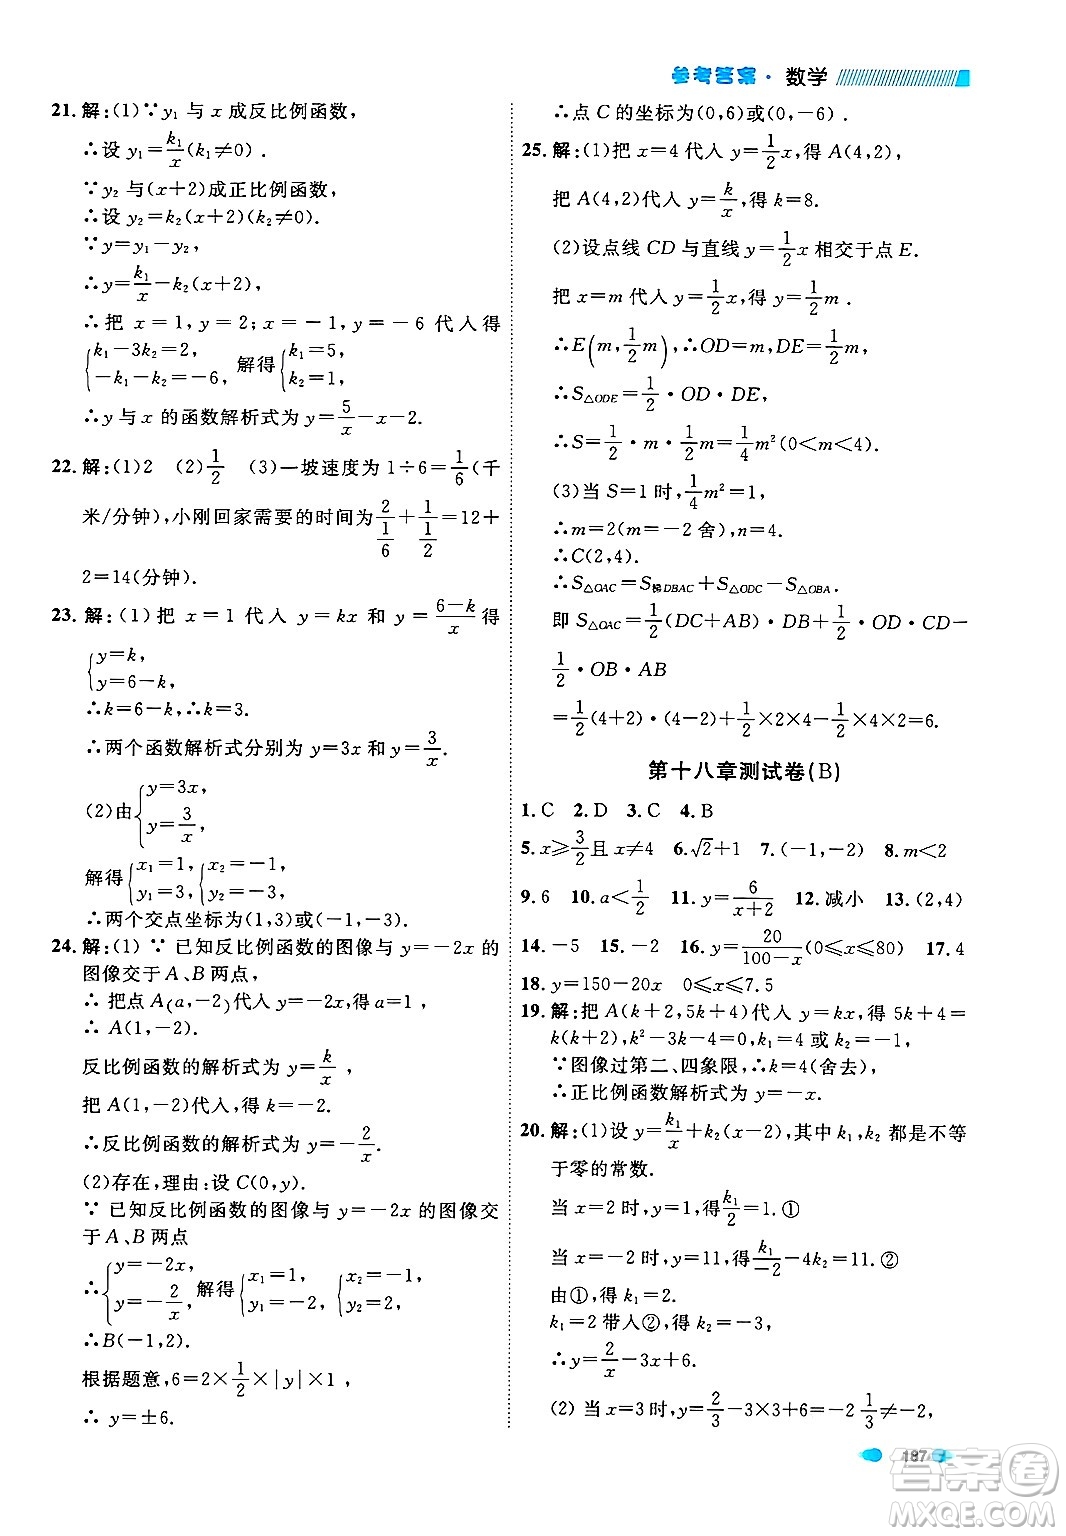 参考答案·数学
21.解:(1)∵y₁与x成反比例函数,
∴设y₁=k₁/x(k₁≠0).
∵y₂与(x+2)成正比例函数,
∴设y₂=k₂(x+2)(k₂≠0).
∵y=y₁-y₂,
∴y=k₁/x-k₂(x+2),
∴把x=1,y=2;x=-1,y=-6代入得
{k₁-3k₂=2, -k₁-k₂=-6, 解得{k₁=5, k₂=1,
∴y与x的函数解析式为y=5/x-x-2.
22.解:(1)2 (2)1/2 (3)一坡速度为1÷6=1/6(千
米/分钟),小刚回家需要的时间为2/(1/6)+1/(1/2)=12+
2=14(分钟).
23.解:(1)把x=1代入y=kx和y=(6-k)/x得
{y=k, y=6-k,
∴k=6-k,∴k=3.
∴两个函数解析式分别为y=3x和y=3/x.
(2)由{y=3x, y=3/x,
解得{x₁=1, y₁=3, {x₂=-1, y₂=-3,
∴两个交点坐标为(1,3)或(-1,-3).
24.解:(1)∵已知反比例函数的图像与y=-2x的
图像交于A、B两点,
∴把点A(a,-2)代入y=-2x,得a=1,
∴A(1,-2).
反比例函数的解析式为y=k/x,
把A(1,-2)代入,得k=-2.
∴反比例函数的解析式为y=-2/x.
(2)存在,理由:设C(0,y).
∵已知反比例函数的图像与y=-2x的图像交
于A、B两点
∴{y=-2x, y=-2/x, 解得{x₁=1, y₁=-2, {x₂=-1, y₂=2,
∴B(-1,2).
根据题意,6=2×1/2×|y|×1,
∴y=±6.
∴点C的坐标为(0,6)或(0,-6).
25.解:(1)把x=4代入y=1/2x,得A(4,2),
把A(4,2)代入y=k/x,得k=8.
(2)设点线CD与直线y=1/2x相交于点E.
把x=m代入y=1/2x,得y=1/2m.
∴E(m,1/2m),∴OD=m,DE=1/2m,
∴S△ODE=1/2·OD·DE,
∴S=1/2·m·1/2m=1/4m²(0<m<4),
(3)当S=1时,1/4m²=1,
∴m=2(m=-2舍),n=4.
∴C(2,4).
∴S△OAC=S梯DBAC+S△ODC-S△OBA.
即S△OAC=1/2(DC+AB)·DB+1/2·OD·CD-
1/2·OB·AB
=1/2(4+2)·(4-2)+1/2×2×4-1/2×4×2=6.
第十八章测试卷(B)
1.C 2.D 3.C 4.B
5.x≥3/2且x≠4 6.√2+1 7.(-1,-2) 8.m<2
9.6 10.a<1/2 11.y=6/(x+2) 12.减小 13.(2,4)
14.-5 15.-2 16.y=20/(100-x)(0≤x≤80) 17.4
18.y=150-20x 0≤x≤7.5
19.解:把A(k+2,5k+4)代入y=kx,得5k+4=
k(k+2),k²-3k-4=0,k₁=4或k₂=-1.
∵图像过第二、四象限,∴k=4(舍去).
∴正比例函数解析式为y=-x.
20.解:(1)设y=k₁/x+k₂(x-2),其中k₁,k₂都是不等
于零的常数.
当x=2时,y=1,得k₁/2=1.①
当x=-2时,y=11,得k₁/-2-4k₂=11.②
由①,得k₁=2.
k₁=2带入②,得k₂=-3,
∴y=2/x-3x+6.
(2)当x=3时,y=2/3-3×3+6=-2 1/3≠-2,
187
答案圈
MXQE.COM